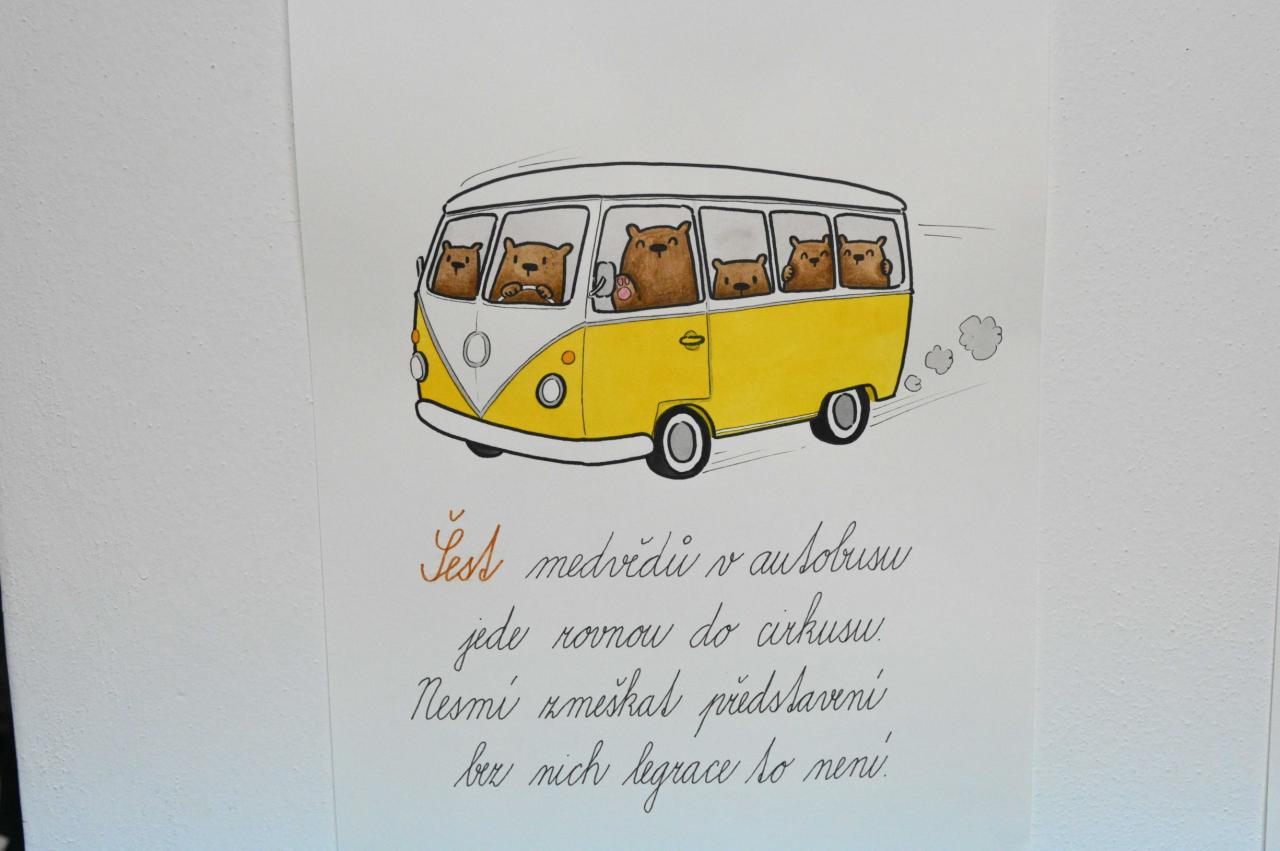 Šest medvědů v autobusu
jede rovnou do cirkusu.
Nesmí zmeškat představení
bez nich legrace to není.